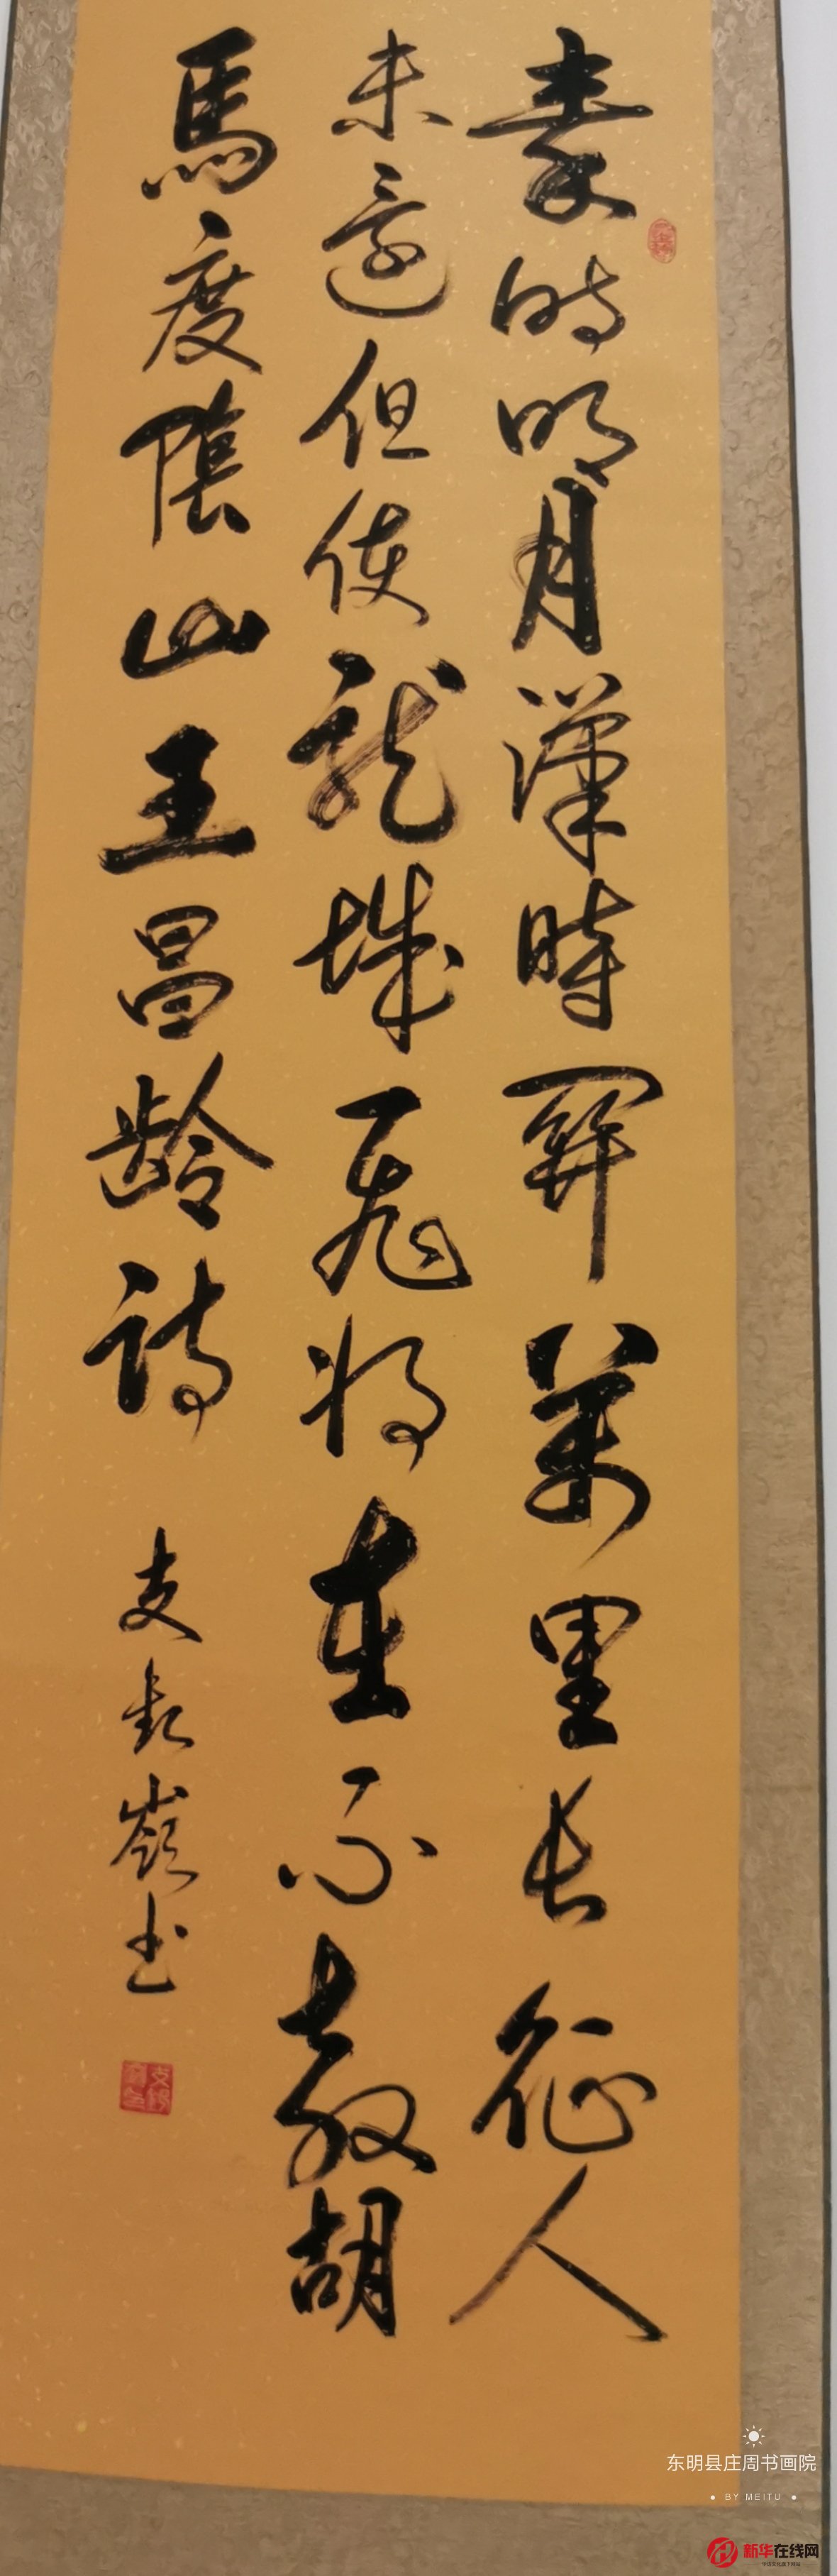 秦时明月漢時関萬里长征人
未還但使龍城飛将在不教胡
馬度陰山王昌龄诗
支 嶺书
东明县庄周书画院
BY MEITU
新华在线网